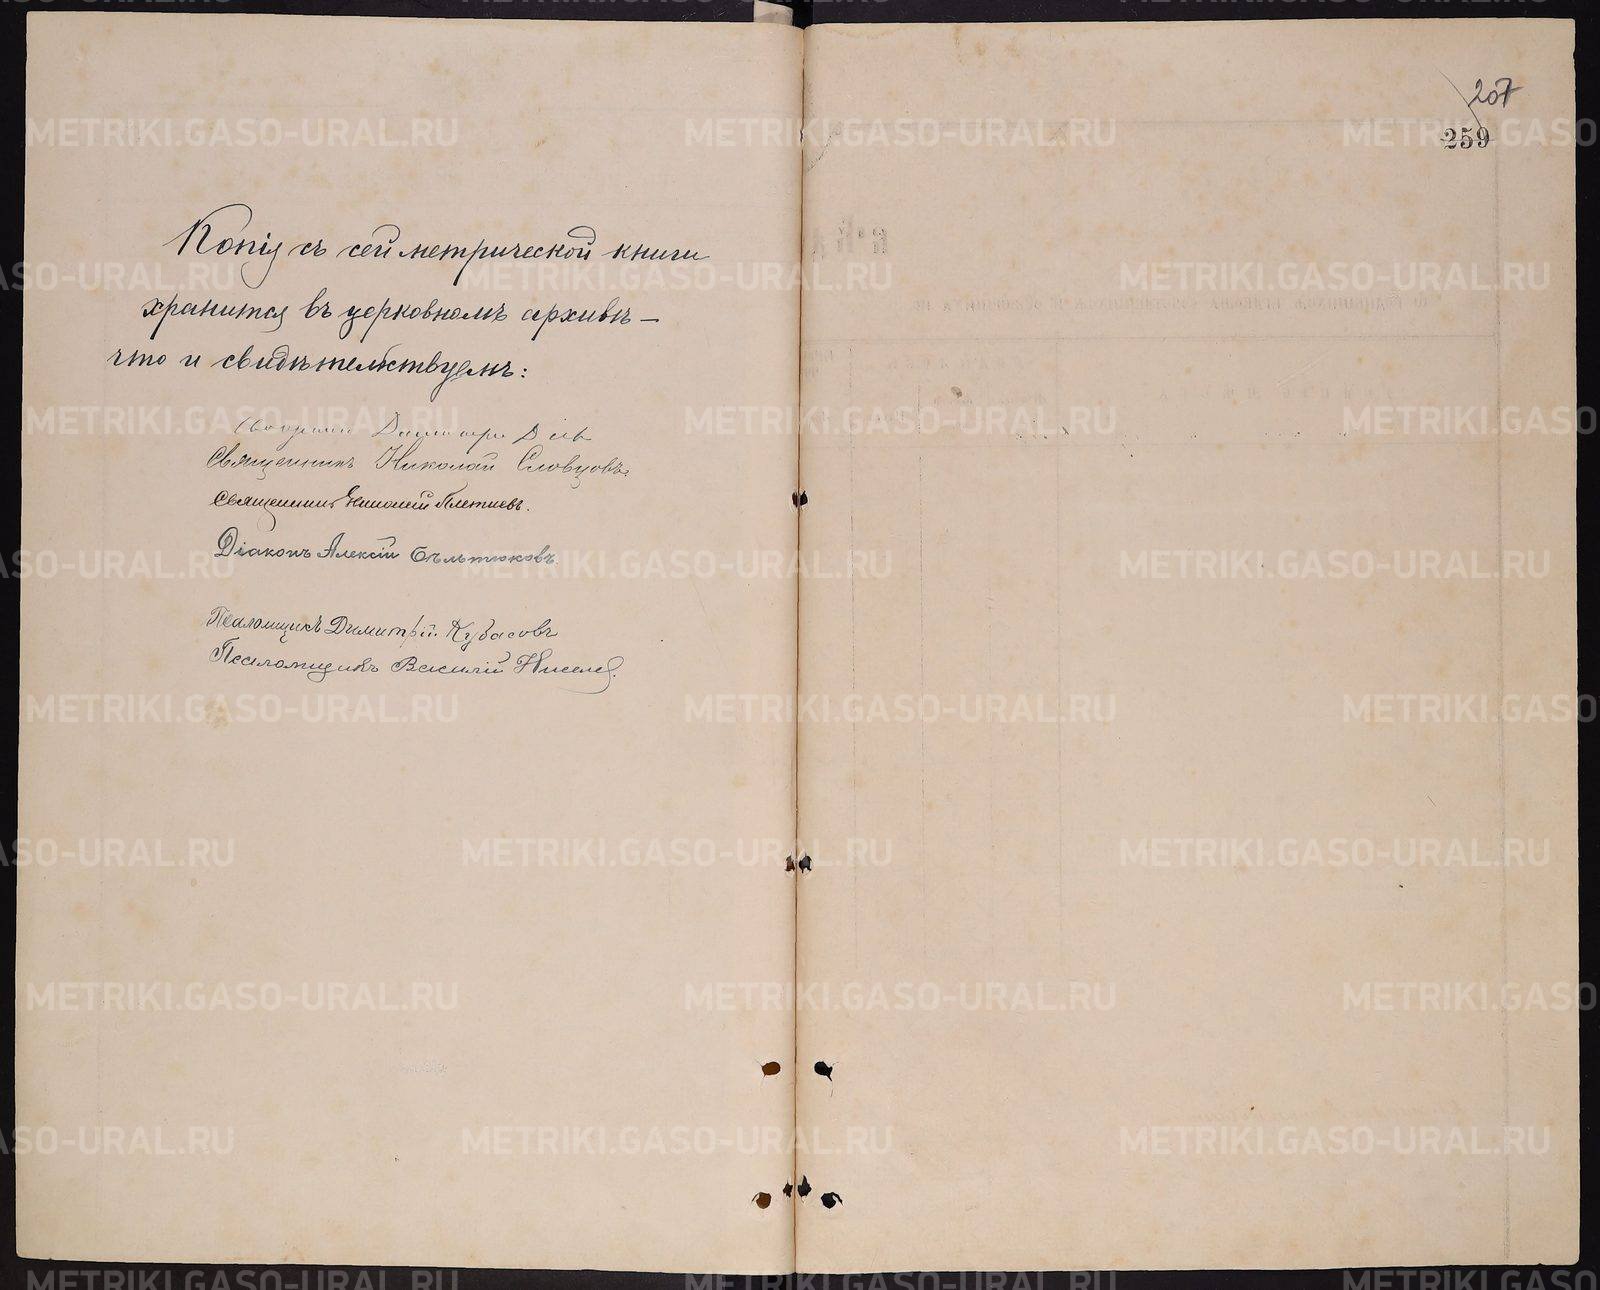 Копія съ сей метрической книги
хранится въ церковномъ архивѣ —
что и свидѣтельствуемъ:
Священникъ Николай Словцовъ.
Священникъ Плетневъ.
Діаконъ Алексій Бѣльтюковъ.
Псаломщикъ Димитрій Кубасовъ
Псаломщикъ Василій
207
259
METRIKI.GASO-URAL.RU